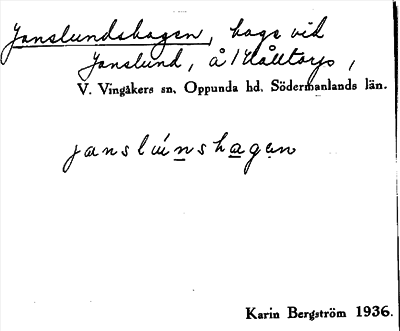 Janslundshagen, hage vid
Janslund, å 1 Hålltorp,
V. Vingåkers sn, Oppunda hd, Södermanlands län.
janslúnshagan
Karin Bergström 1936.